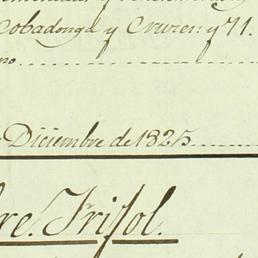 Cobadonga y Cruces: y 71.
no
Diciembre de 1825
re. Trifol.